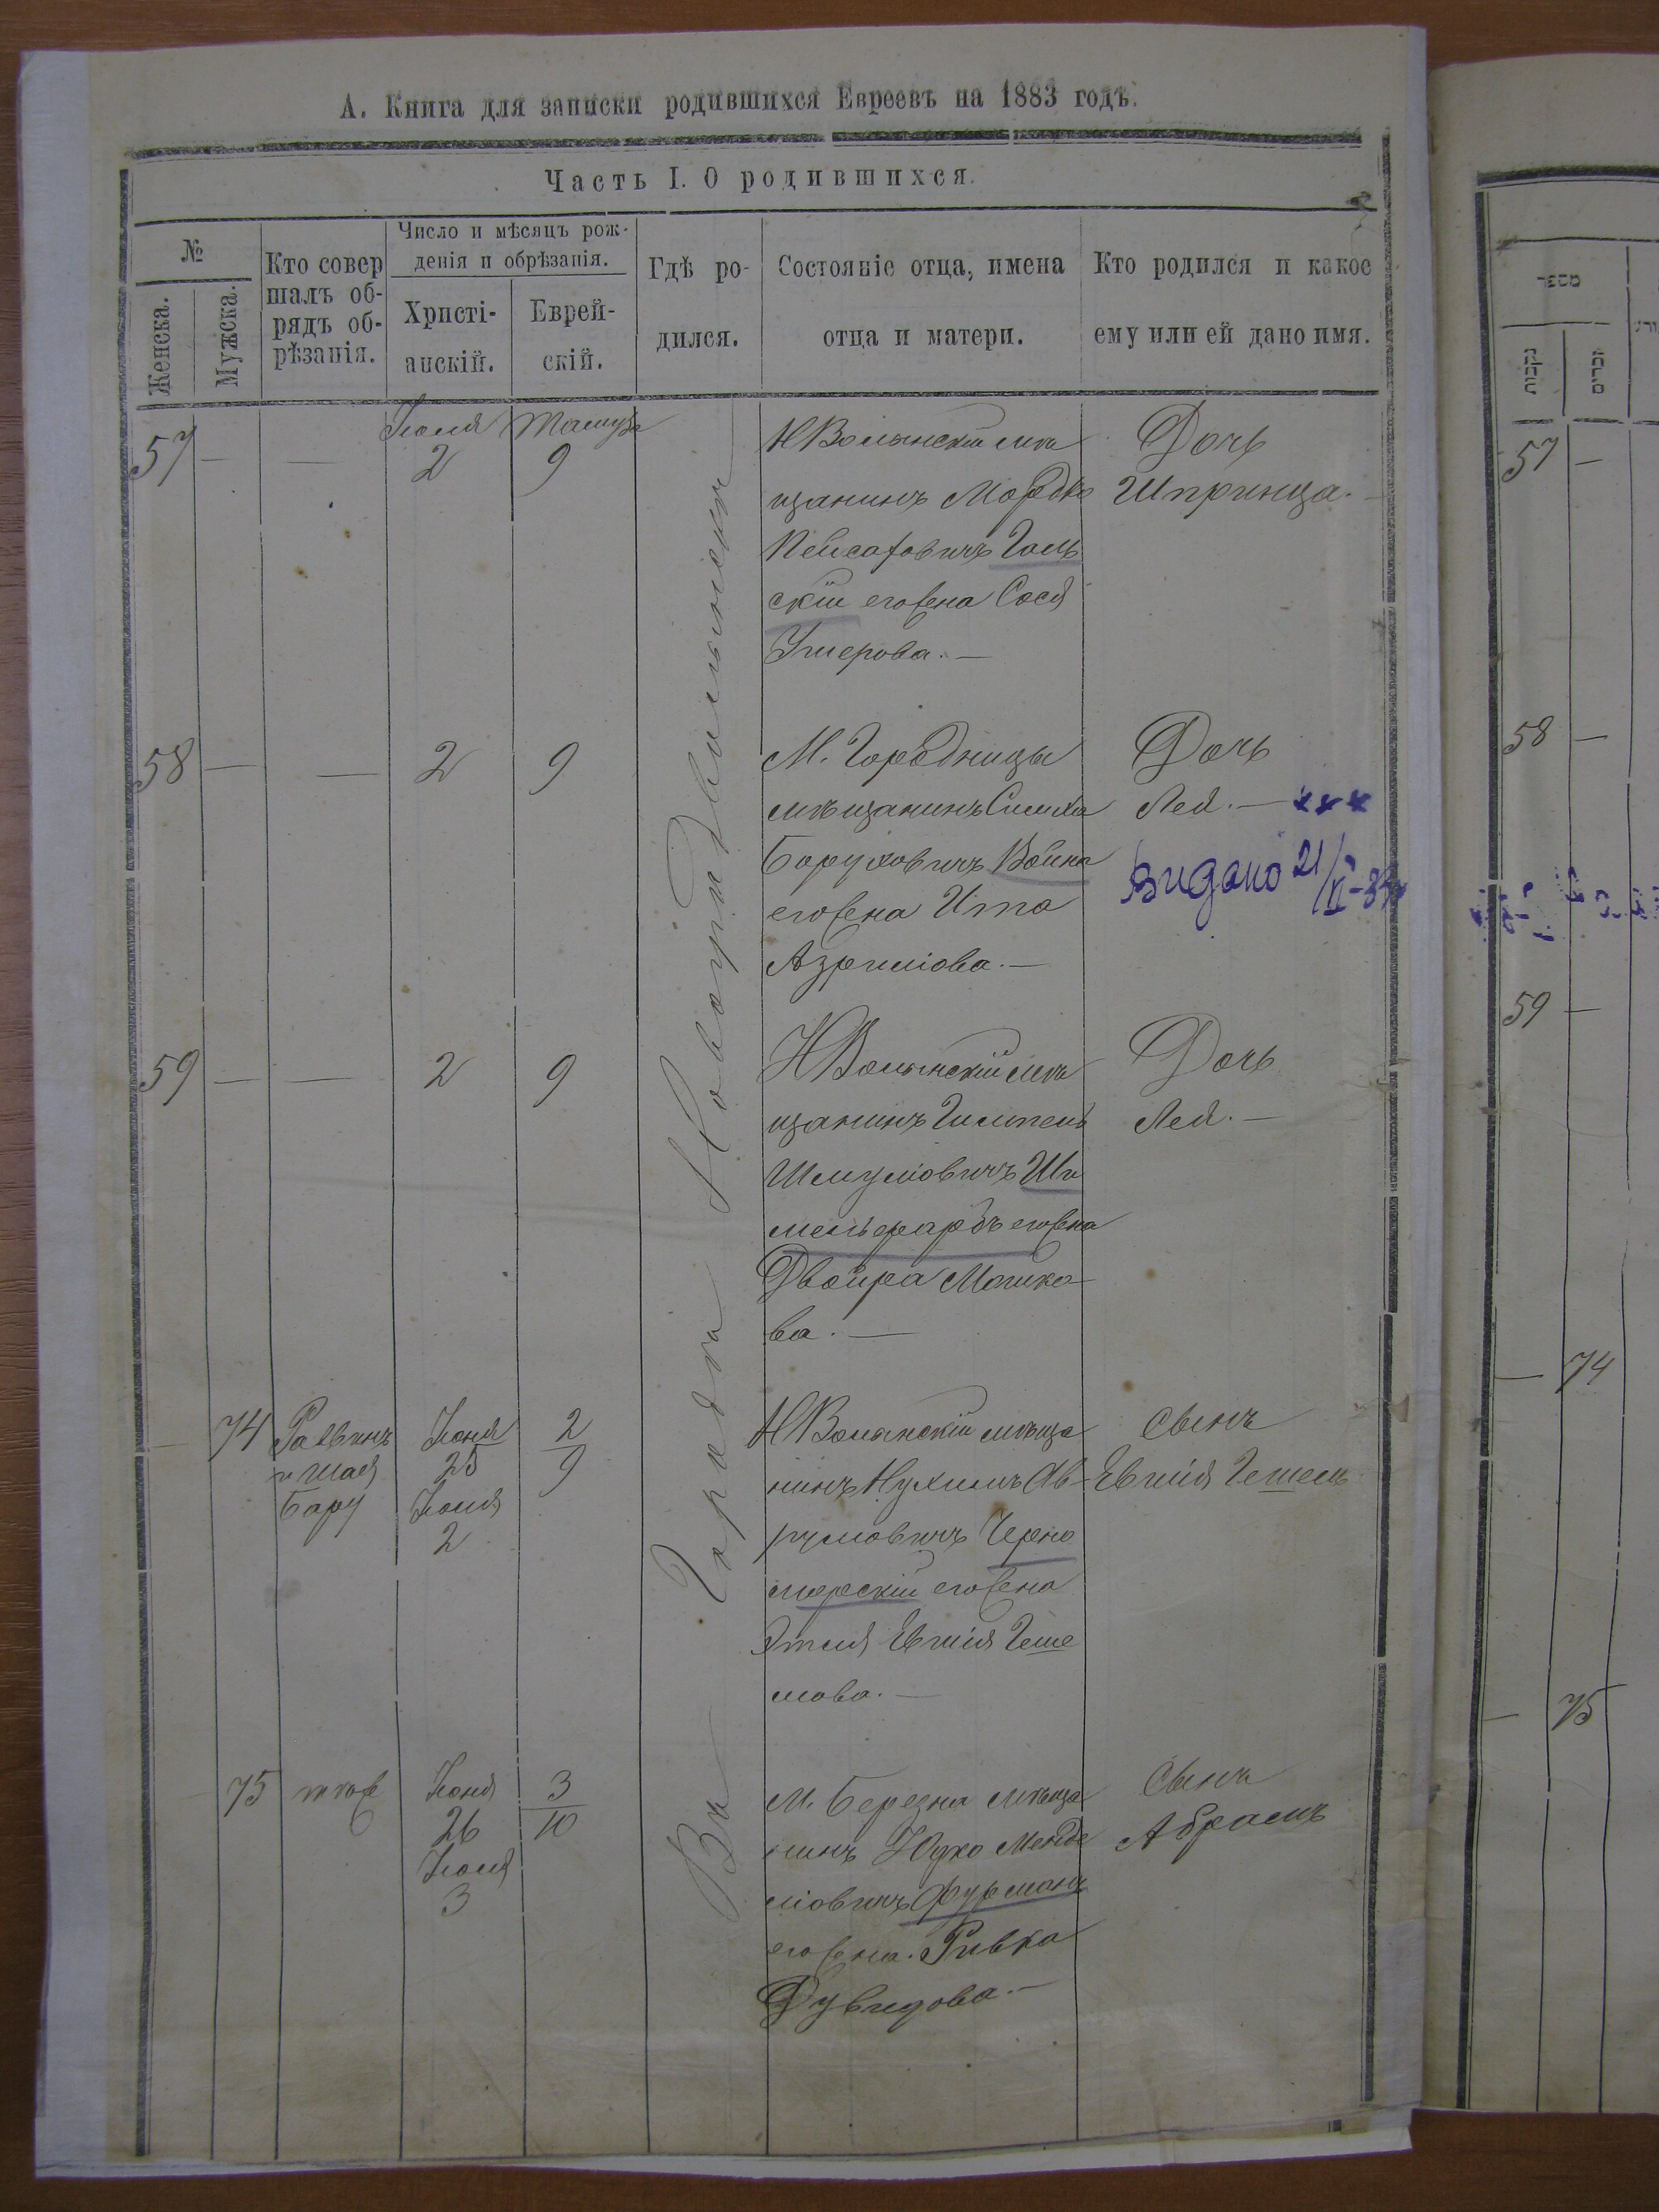 А. Книга для записки родившихся Евреевъ на 1883 годъ.
Часть I. О родившихся.
№
Женска.
Мужска.
Кто совер
шалъ об-
рядъ об-
рѣзанія.
Число и мѣсяцъ рож-
денія и обрѣзанія.
Христі-
анскій.
Еврей-
скій.
Гдѣ ро-
дился.
Состояніе отца, имена
отца и матери.
Кто родился и какое
ему или ей дано имя.
Въ Городѣ Новоградволынскѣ
57 — — Іюля 2 Тамуза 9
НВолынскій мѣ
щанинъ Мордко
Пейсаховичъ Галь
скій его жена Сося
Ушерова. —
Дочь
Шпринца. —
58 — — 2 9
М. Городницы
мѣщанинъ Симха
Боруховичъ Война
его жена Ита
Азрилiова. —
Дочь
Лея. —
Видано 21/
59 — — 2 9
НВолынскій мѣ
щанинъ
Шмуліовичъ Ши
мельфарбъ его жена
Двойра Мошко
ва. —
Дочь
Лея. —
— 74
Раввинъ
и Шая
Бару
Іюня
25
Іюля
2
2
9
НВолынскій мѣща
нинъ Нухимъ Ав-
румовичъ Черно
морскій его жена
Этля Евшія Геше
лова. —
Сынъ
Евшія Гешель
75 тож
Іюня
26
Іюля
3
3
10
М. Березна мѣща
нинъ Юдко Менде
ліовичъ Фурманъ
его жена. Ривка
Дувидова. —
Сынъ
Абрамъ
מספר
נקבות
זכרים
57 —
58 —
59 —
— 74
— 75